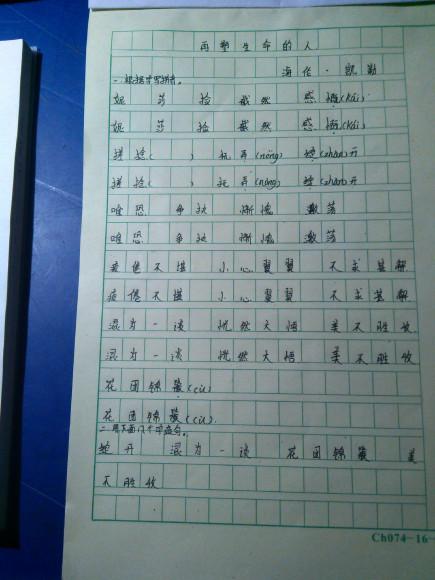 再塑生命的人
海伦·凯勒
一.根据拼写拼音.
妮 莎 捡 截然 感慨(kǎi)
妮 莎 捡 截然 感慨(kǎi)
搓捻( ) 抚弄(nòng) 绽(zhàn)开
搓捻( ) 抚弄(nòng) 绽(zhàn)开
唯恐 争执 惭愧 激荡
唯恐 争执 惭愧 激荡
疲倦不堪 小心翼翼 不求甚解
疲倦不堪 小心翼翼 不求甚解
混为一谈 恍然大悟 美不胜收
混为一谈 恍然大悟 美不胜收
花团锦簇(cù)
花团锦簇(cù)
二.用下面几个词造句.
绽开 混为一谈 花团锦簇 美
不胜收
Ch074-16-